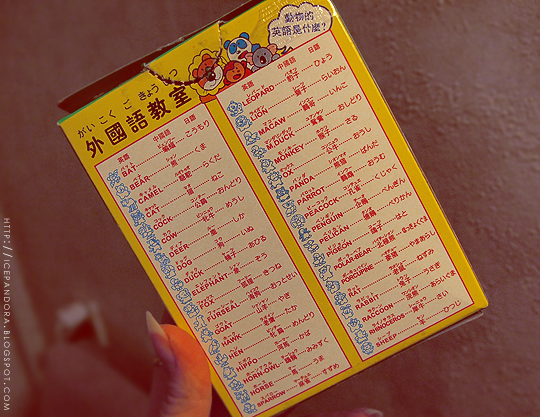 動物的
英語是什麼?
がい こく ご きょう しつ
外國語教室
英語 中國語 日語
BAT 蝙蝠 こうもり
BEAR 熊 くま
CAMEL 駱駝 らくだ
CAT 貓 ねこ
COCK 公雞 おんどり
COW めうし
DEER 鹿 しか
DOG 狗 いぬ
DUCK 鴨子 あひる
ELEPHANT 象 ぞう
FOX 狐狸 きつね
FURSEAL 海狗 おっとせい
GOAT 山羊 やぎ
HAWK たか
HEN めんどり
HIPPO 河馬 かば
HORN-OWL みみずく
HORSE 馬 うま
SPARROW 麻雀 すずめ
英語 中國語 日語
LEOPARD 豹子 ひょう
LION 獅子 らいおん
MACAW 鸚哥 いんこ
M.DUCK 鴛鴦 おしどり
MONKEY 猴子 さる
OX 公牛 おうし
PANDA ぱんだ
PARROT 鸚鵡 おうむ
PEACOCK 孔雀 くじゃく
PENGUIN 企鵝 ぺんぎん
PELICAN ぺりかん
PIGEON 鴿子 はと
POLAR-BEAR 北極熊
やまあらし
RAT 老鼠 ねずみ
RABBIT 兔子 うさぎ
RACCOON あらいぐま
犀牛 さい
SHEEP 羊 ひつじ
HTTP://ICEPANDORA.BLOGSPOT.COM